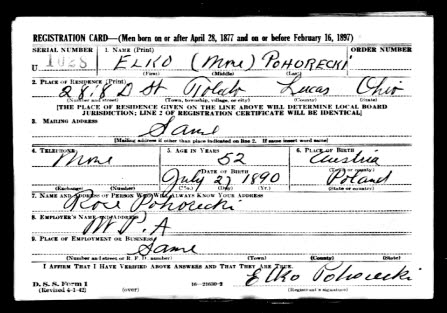 REGISTRATION CARD—(Men born on or after April 28, 1877 and on or before February 16, 1897)
SERIAL NUMBER 1. NAME (Print) ORDER NUMBER
U 1028 ELKO (None) POHORECKI
(First) (Middle) (Last)
2. PLACE OF RESIDENCE (Print)
2818 D St Toledo Lucas Ohio
(Number and street) (Town, township, village, or city) (County) (State)
[THE PLACE OF RESIDENCE GIVEN ON THE LINE ABOVE WILL DETERMINE LOCAL BOARD
JURISDICTION; LINE 2 OF REGISTRATION CERTIFICATE WILL BE IDENTICAL]
3. MAILING ADDRESS
Same
[Mailing address if other than place indicated on line 2. If same insert word same]
4. TELEPHONE 5. AGE IN YEARS 6. PLACE OF BIRTH
None 52 Austria
DATE OF BIRTH (Town or county)
July 27 1890 Poland
(Exchange) (Number) (Mo.) (Day) (Yr.) (State or country)
7. NAME AND ADDRESS OF PERSON WHO WILL ALWAYS KNOW YOUR ADDRESS
Rose Pohorecki
8. EMPLOYER'S NAME AND ADDRESS
W P A
9. PLACE OF EMPLOYMENT OR BUSINESS
Same
(Number and street or R. F. D. number) (Town) (County) (State)
I AFFIRM THAT I HAVE VERIFIED ABOVE ANSWERS AND THAT THEY ARE TRUE.
Elko Pohorecki
D. S. S. Form 1
(Revised 4-1-42) (over) 16—21630-2 (Registrant's signature)